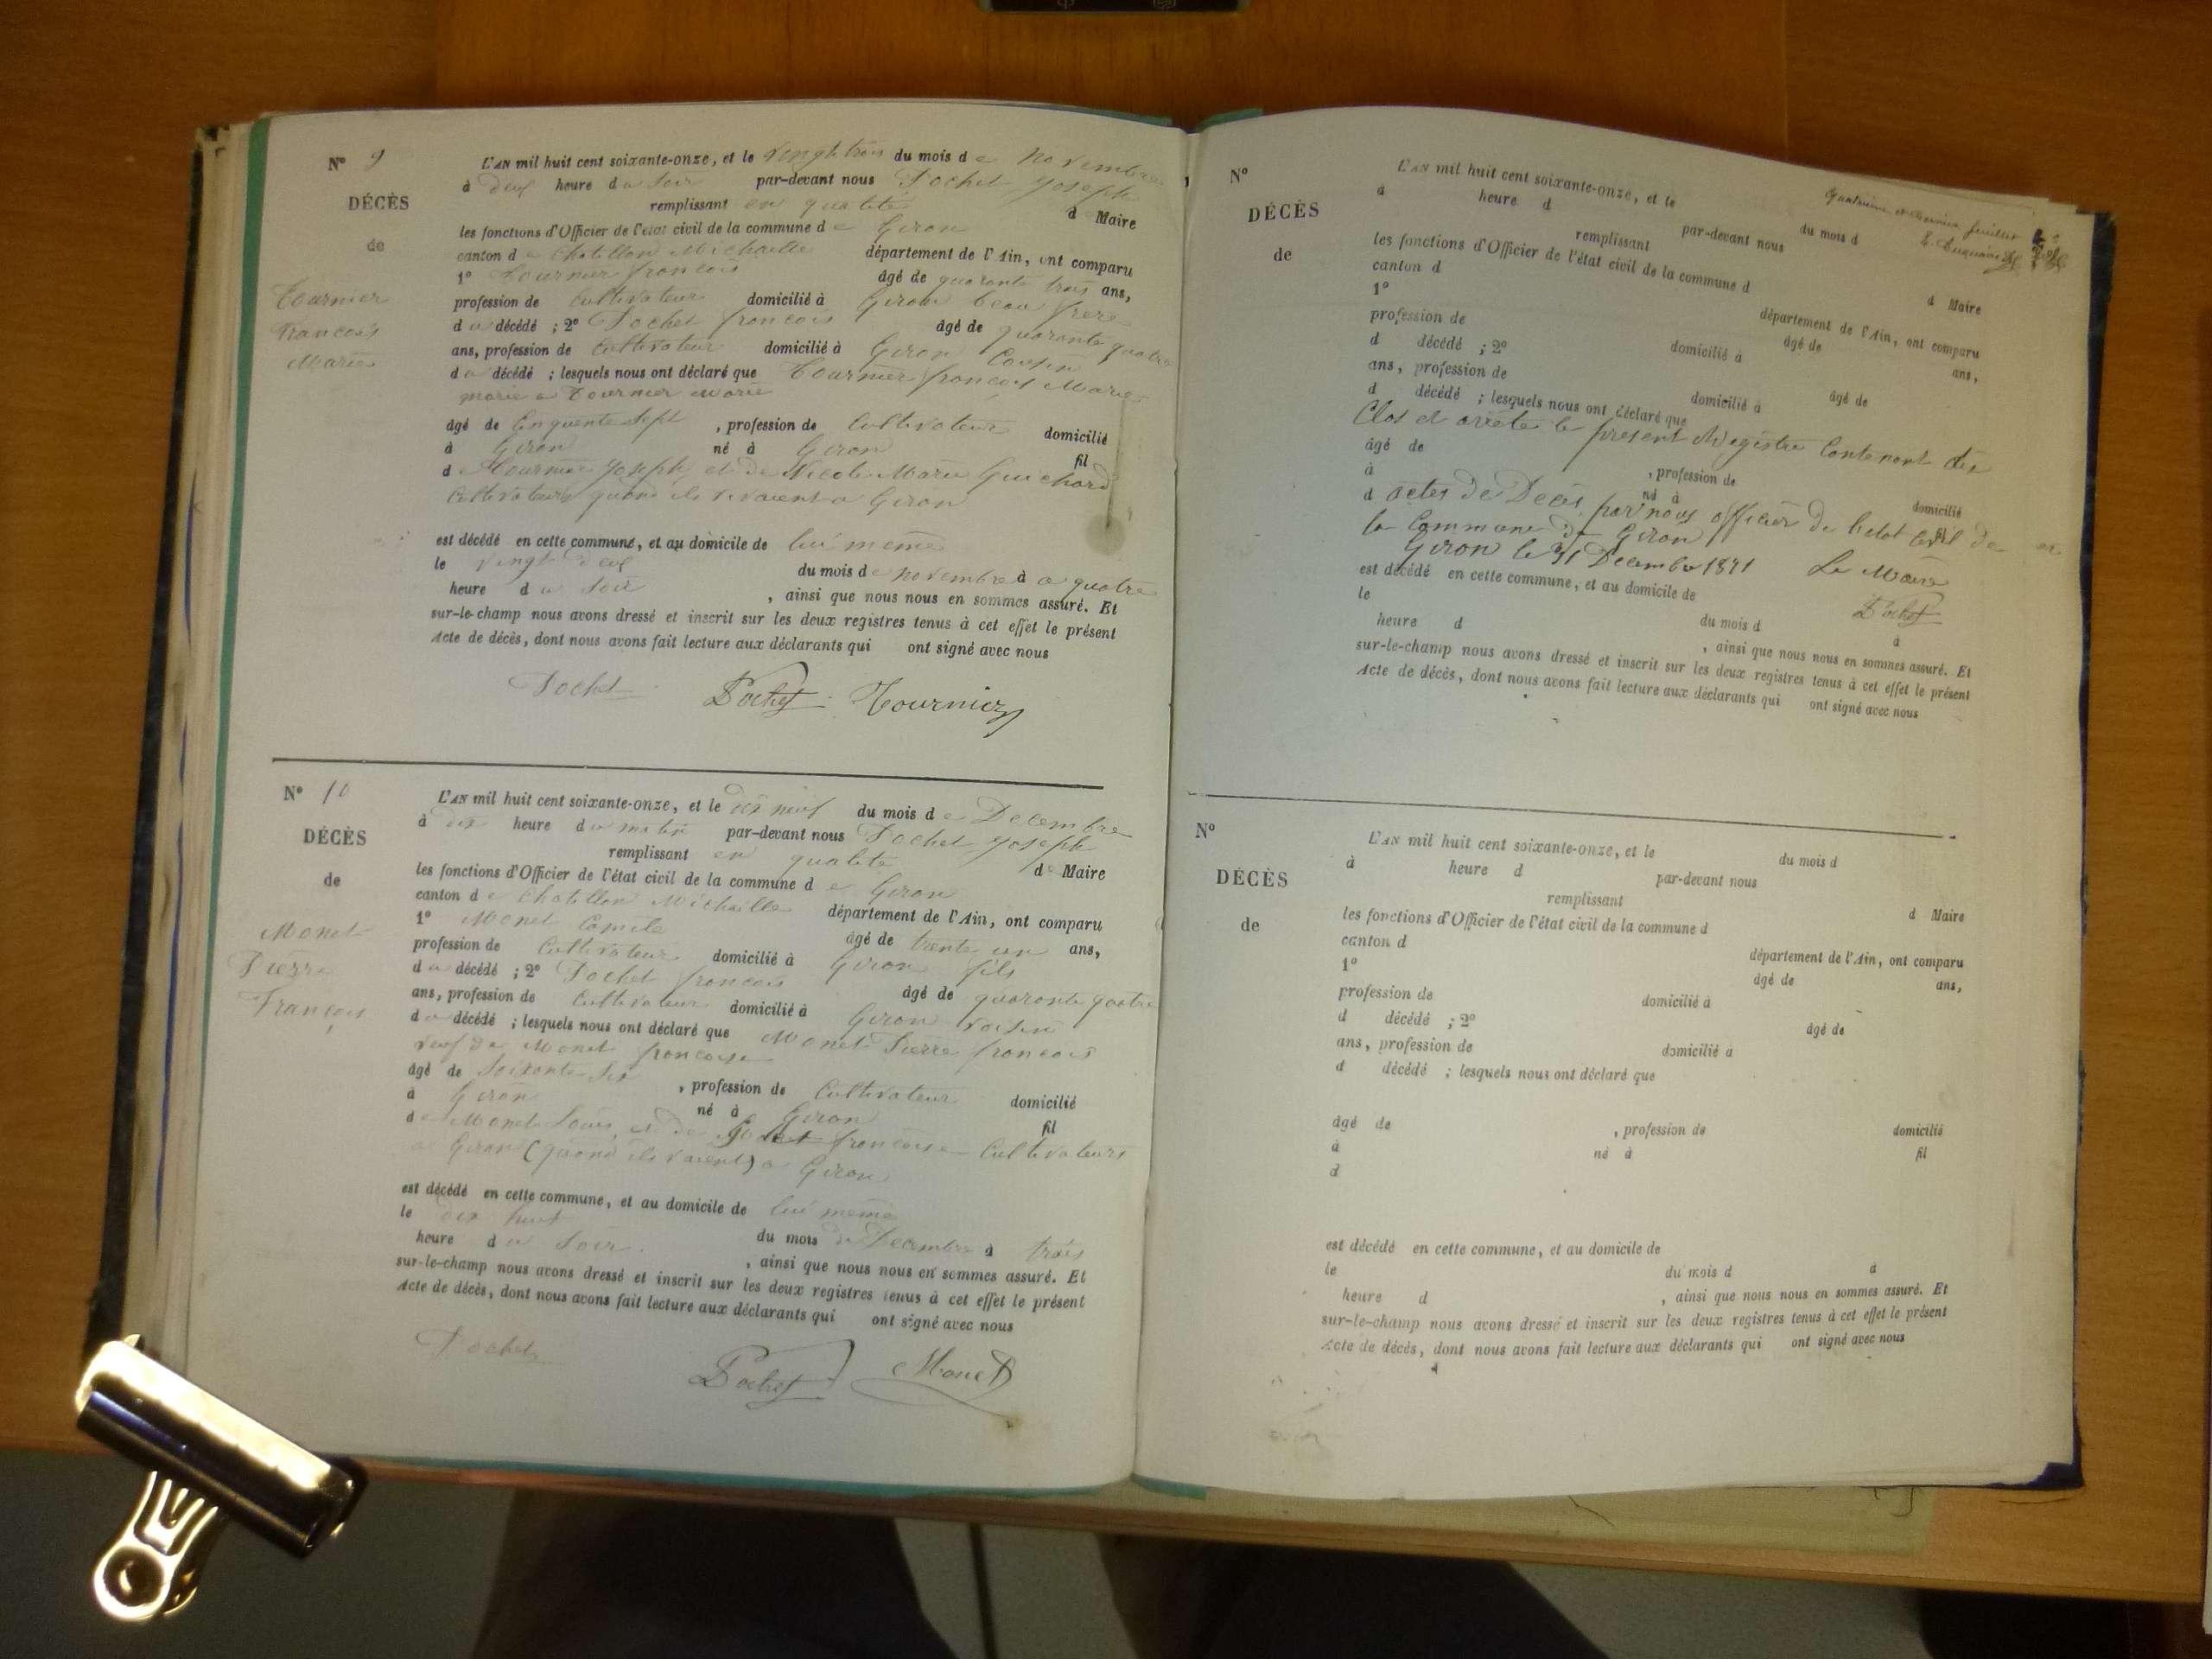 N° 9
DÉCÈS
de
Tournier
francois
Marie
L'AN mil huit cent soixante-onze, et le vingt trois du mois de novembre
à deux heure du soir par-devant nous Pochet joseph
remplissant en qualité d Maire
les fonctions d'Officier de l'état civil de la commune de Giron
canton de Chatillon Michaille département de l'Ain, ont comparu
1° Tournier francois âgé de quarante trois ans,
profession de Cultivateur domicilié à Giron beau frere
du décédé ; 2° Pochet francois âgé de quarante quatre
ans, profession de Cultivateur domicilié à Giron Cousin
du décédé ; lesquels nous ont déclaré que Tournier francois Marie
marie a Tournier Marie
âgé de Cinquente Sept , profession de Cultivateur domicilié
à Giron né à Giron fil
de Tournier joseph et de Nicole Marie Guichard
Cultivateurs quand ils vivaient a Giron
est décédé en cette commune, et au domicile de lui meme
le vingt deux du mois de novembre à a quatre
heure du Soir , ainsi que nous nous en sommes assuré. Et
sur-le-champ nous avons dressé et inscrit sur les deux registres tenus à cet effet le présent
Acte de décès, dont nous avons fait lecture aux déclarants qui ont signé avec nous
Pochet Pochet Tournier
N° 10
DÉCÈS
de
Monet
Pierre
François
L'AN mil huit cent soixante-onze, et le dix neuf du mois de Decembre
à dix heure du matin par-devant nous Pochet joseph
remplissant en qualité de Maire
les fonctions d'Officier de l'état civil de la commune de Giron
canton de Chatillon Michaille département de l'Ain, ont comparu
1° Monet Camile âgé de trente un ans,
profession de Cultivateur domicilié à Giron fils
du décédé ; 2° Pochet francois âgé de quarante quatre
ans, profession de Cultivateur domicilié à Giron voisin
du décédé ; lesquels nous ont déclaré que Monet Pierre francois
veuf de Monet francoise
âgé de Soixonte Six , profession de Cultivateur domicilié
à Giron né à Giron fil
de Monet Louis et de francoise Cultivateurs
a Giron (quand ils vivaient) a Giron
est décédé en cette commune, et au domicile de lui meme
le dix huit du mois de Decembre à trois
heure du Soir , ainsi que nous nous en sommes assuré. Et
sur-le-champ nous avons dressé et inscrit sur les deux registres tenus à cet effet le présent
Acte de décès, dont nous avons fait lecture aux déclarants qui ont signé avec nous
Pochet Pochet Monet
N°
DÉCÈS
de
et dernier feuillet
L'AN mil huit cent soixante-onze, et le du mois d
à heure d par-devant nous
remplissant d Maire
les fonctions d'Officier de l'état civil de la commune d
canton d département de l'Ain, ont comparu
1° âgé de ans,
profession de domicilié à
d décédé ; 2° âgé de
ans, profession de domicilié à
d décédé ; lesquels nous ont déclaré que
Clos et arrêté le present Registre Contenant dix
âgé de , profession de domicilié
à né à fil
d actes de Decès par nous officier de l'etat Civil de
la Commune de Giron
Giron le 31 Decembre 1871 Le Maire
Pochet
est décédé en cette commune, et au domicile de
le du mois d à
heure d , ainsi que nous nous en sommes assuré. Et
sur-le-champ nous avons dressé et inscrit sur les deux registres tenus à cet effet le présent
Acte de décès, dont nous avons fait lecture aux déclarants qui ont signé avec nous
N°
DÉCÈS
de
L'AN mil huit cent soixante-onze, et le du mois d
à heure d par-devant nous
remplissant d Maire
les fonctions d'Officier de l'état civil de la commune d
canton d département de l'Ain, ont comparu
1° âgé de ans,
profession de domicilié à
d décédé ; 2° âgé de
ans, profession de domicilié à
d décédé ; lesquels nous ont déclaré que
âgé de , profession de domicilié
à né à fil
d
est décédé en cette commune, et au domicile de
le du mois d à
heure d , ainsi que nous nous en sommes assuré. Et
sur-le-champ nous avons dressé et inscrit sur les deux registres tenus à cet effet le présent
Acte de décès, dont nous avons fait lecture aux déclarants qui ont signé avec nous